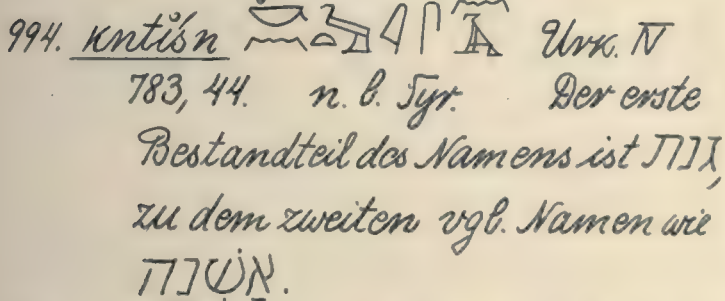 994. kntỉśn Urk. IV
783, 44. n. b. Tyr. Der erste
Bestandteil des Namens ist גנת,
zu dem zweiten vgl. Namen wie
אַשְׁנָה.